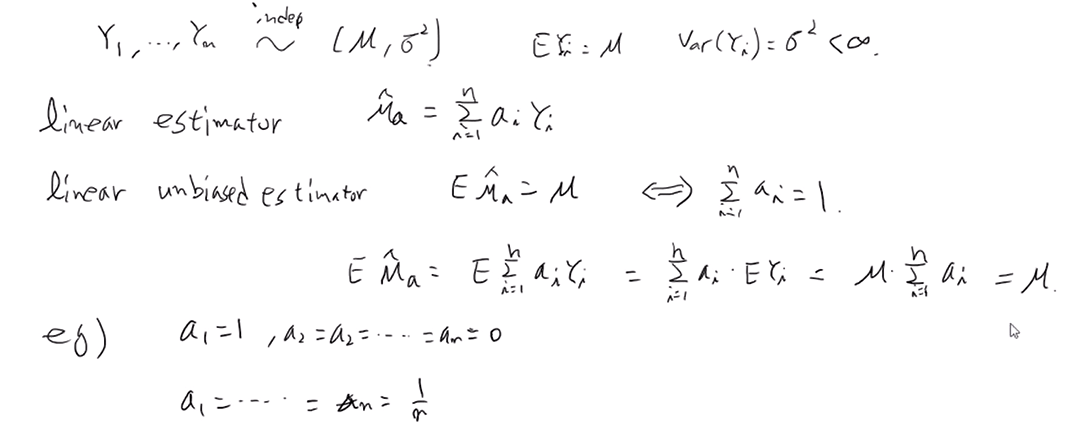 Y₁, ..., Yₙ indep ~ (μ, σ²) EYᵢ = μ Var(Yᵢ) = σ² < ∞.
linear estimator μ̂ₐ = Σᵢ₌₁ⁿ aᵢ Yᵢ
linear unbiased estimator E μ̂ₐ = μ ⟺ Σᵢ₌₁ⁿ aᵢ = 1.
E μ̂ₐ = E Σᵢ₌₁ⁿ aᵢYᵢ = Σᵢ₌₁ⁿ aᵢ · EYᵢ = μ · Σᵢ₌₁ⁿ aᵢ = μ.
eg) a₁ = 1, a₂ = a₂ = ····· = aₙ = 0
a₁ = ····· = aₙ = 1/n